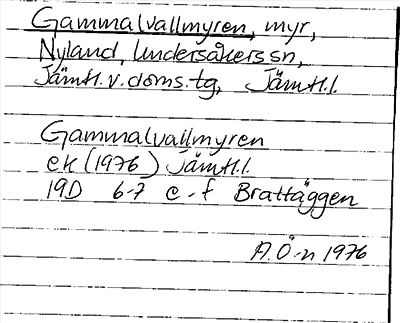 Gammalvallmyren, myr,
Nyland, Undersåkers sn,
Jämtl.v.doms.tg, Jämtl.l.
Gammalvallmyren
ek (1976) Jämtl.l.
19D 6-7 e-f Brattäggen
A.Ö-n 1976